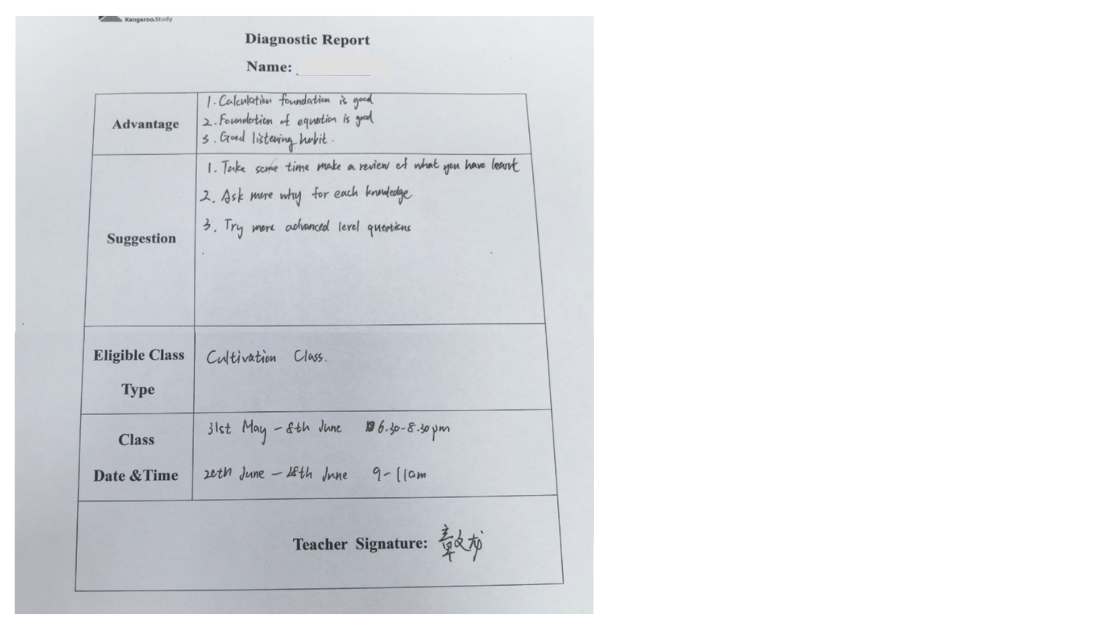 Kangaroo.Study
Diagnostic Report
Name:
Advantage
1. Calculation foundation is good
2. Foundation of equation is good
3. Good listening habit.
Suggestion
1. Take some time make a review of what you have learnt
2. Ask more why for each knowledge
3. Try more advanced level questions
Eligible Class
Type
Cultivation Class.
Class
Date &Time
31st May - 8th June 6.30-8.30pm
20th June - 28th June 9-11am
Teacher Signature: 章文龙